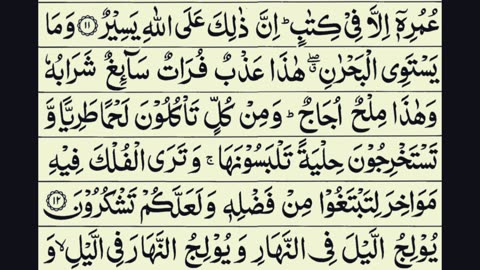 عُمُرِهٖۤ اِلَّا فِیْ كِتٰبٍ ؕ اِنَّ ذٰلِكَ عَلَی اللّٰهِ یَسِیْرٌ ﴿۱۱﴾ وَمَا
یَسْتَوِی الْبَحْرٰنِ ۖۗ هٰذَا عَذْبٌ فُرَاتٌ سَآئِغٌ شَرَابُهٗ
وَهٰذَا مِلْحٌ اُجَاجٌ ؕ وَمِنْ كُلٍّ تَاْكُلُوْنَ لَحْمًا طَرِیًّا وَّ
تَسْتَخْرِجُوْنَ حِلْیَةً تَلْبَسُوْنَهَا ۚ وَتَرَی الْفُلْكَ فِیْهِ
مَوَاخِرَ لِتَبْتَغُوْا مِنْ فَضْلِهٖ وَلَعَلَّكُمْ تَشْكُرُوْنَ ﴿۱۲﴾
یُوْلِجُ الَّیْلَ فِی النَّهَارِ وَیُوْلِجُ النَّهَارَ فِی الَّیْلِ ۙ وَ